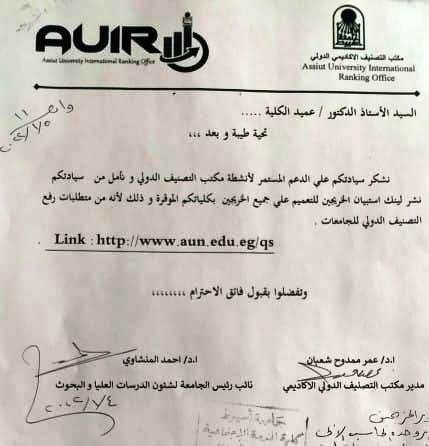 AUIR
Assiut University International Ranking Office
مكتب التصنيف الاكاديمي الدولي
Assiut University International
Ranking Office
السيد الأستاذ الدكتور / عميد الكلية .....
تحية طيبة و بعد ،،،
نشكر سيادتكم علي الدعم المستمر لأنشطة مكتب التصنيف الدولي و نأمل من سيادتكم
نشر لينك استبيان الخريجين للتعميم علي جميع الخريجين بكلياتكم الموقرة و ذلك لأنه من متطلبات رفع
التصنيف الدولي للجامعات .
Link : http://www.aun.edu.eg/qs
وتفضلوا بقبول فائق الاحترام ،،،،،،،،
ا.د/ عمر ممدوح شعبان
مدير مكتب التصنيف الدولي الأكاديمي
ا.د/ احمد المنشاوي
نائب رئيس الجامعة لشئون الدرسات العليا و البحوث
جامعة أسيوط